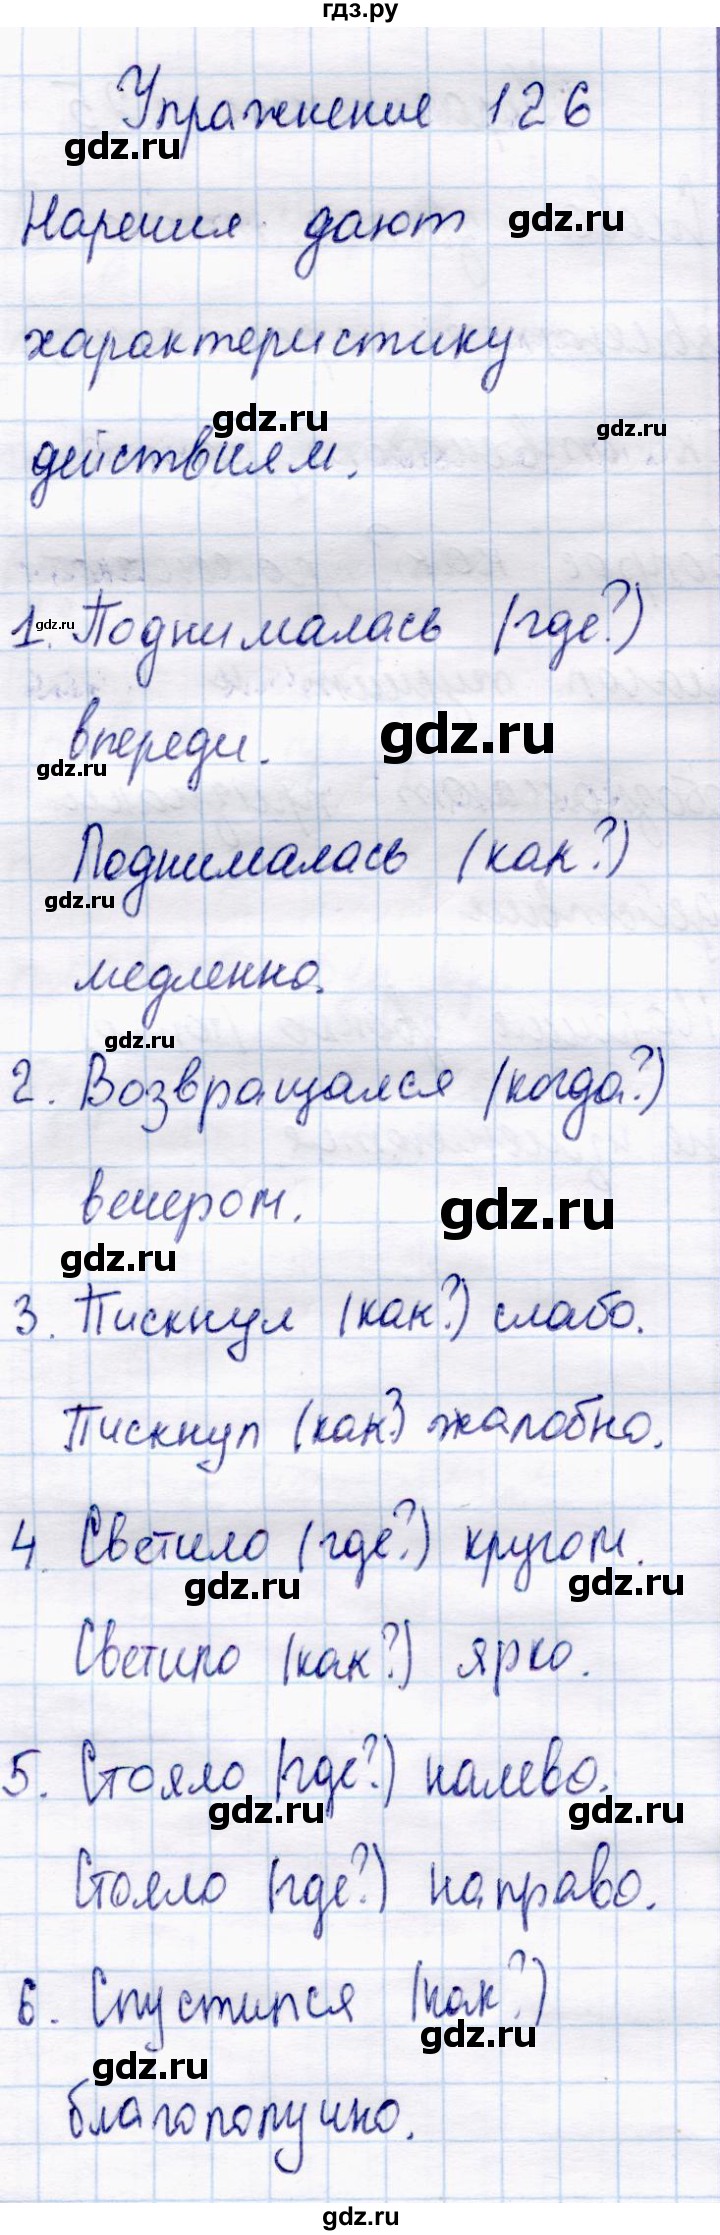 гдз.ру
Упражнение 126
gdz.ru
Наречия дают gdz.ru
характеристику
gdz.ru gdz.ru
действиям.
1. Поднималась (где?)
gdz.ru
впереди. gdz.ru
gdz.ru
Поднималась (как?)
gdz.ru
медленно.
gdz.ru
2. Возвращался (когда?)
вечером. gdz.ru
gdz.ru
3. Пискнул (как?) слабо.
Пискнул (как?) жалобно.
4. Светило (где?) кругом.
gdz.ru gdz.ru
Светило (как?) ярко.
5. Стояло (где?) налево.
gdz.ru gdz.ru
Стояло (где?) направо.
6. Спустился (как?)
gdz.ru
gdz.ru
благополучно.
gdz.ru